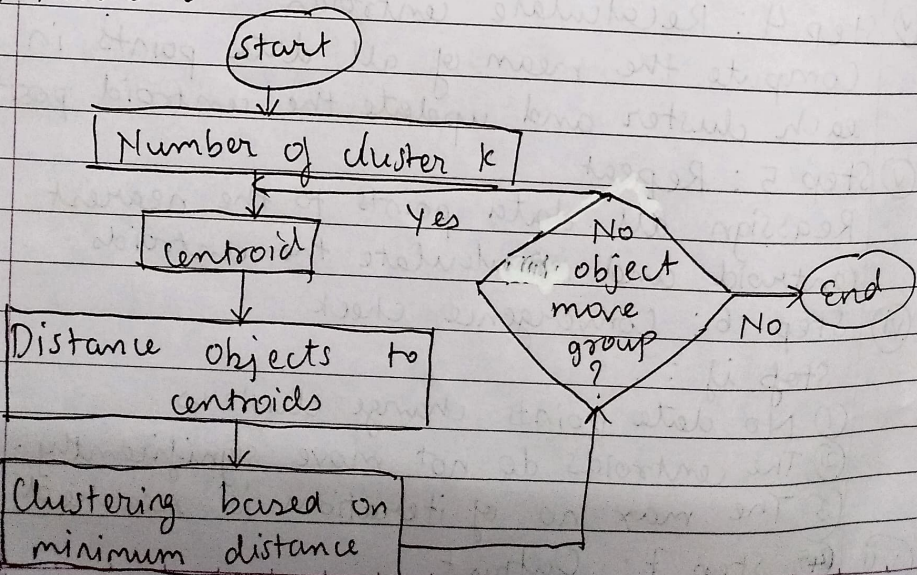 Start
Number of cluster K
Yes
Centroid
No
object
move
group
?
End
No
Distance objects to
centroids
Clustering based on
minimum distance